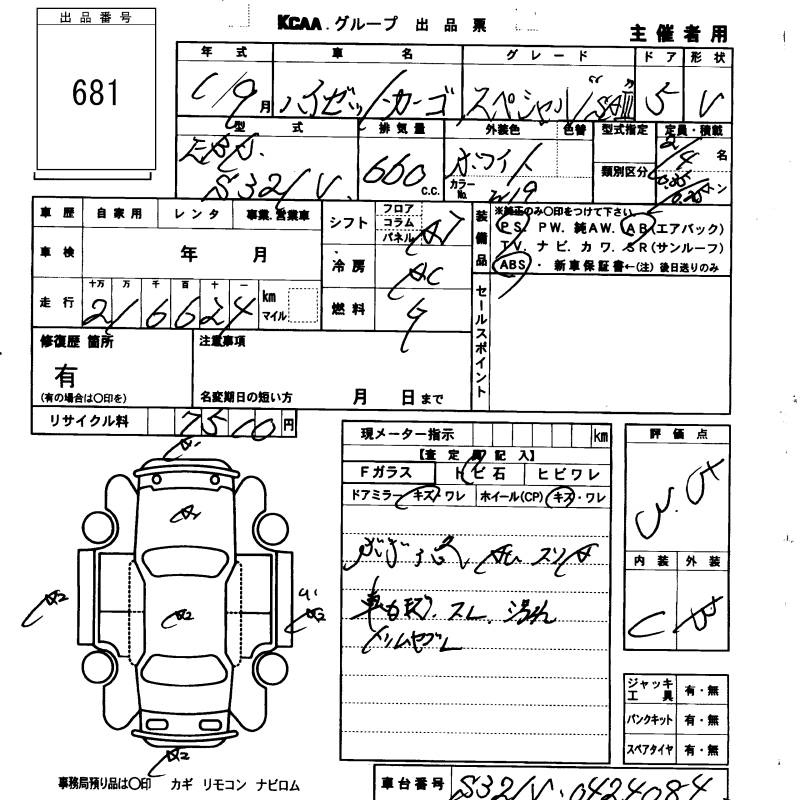 出品番号
681
KCAA.グループ 出品票
主催者用
年式 車名 グレード ドア 形状
/9月 ハイゼットカーゴ スペシャル"SAⅢ" 5 V
型式 排気量 外装色 色替 型式指定 定員・積載
EBD-
S321V 660 c.c. ホワイト
カラーNo. W19
類別区分
2/4名
0.35/0.25トン
車歴 自家用 レンタ 事業.営業車
車検 年 月
走行 十万 万 千 百 十 一
216624 km マイル
シフト フロア コラム パネル AT
冷房 AC
燃料 G
装備品
※純正のみ〇印をつけて下さい。
PS. PW. 純AW. AB(エアバッグ)
TV. ナビ. カワ. SR(サンルーフ)
ABS・ 新車保証書←(注)後日送りのみ
セールスポイント
修復歴 箇所
有
(有の場合は〇印を)
注意事項
名変期日の短い方 月 日まで
リサイクル料 7510円
現メーター指示 km
【査定員記入】
Fガラス トビ石 ヒビワレ
ドアミラー キズ・ワレ ホイール(CP) キズ・ワレ
スリA
スレ. 汚れ
評価点
内装 外装
C
A1
A2
A2
A2
A2
A2
ジャッキ工具 有・無
パンクキット 有・無
スペアタイヤ 有・無
事務局預り品は〇印 カギ リモコン ナビロム
車台番号 S321V-0424084